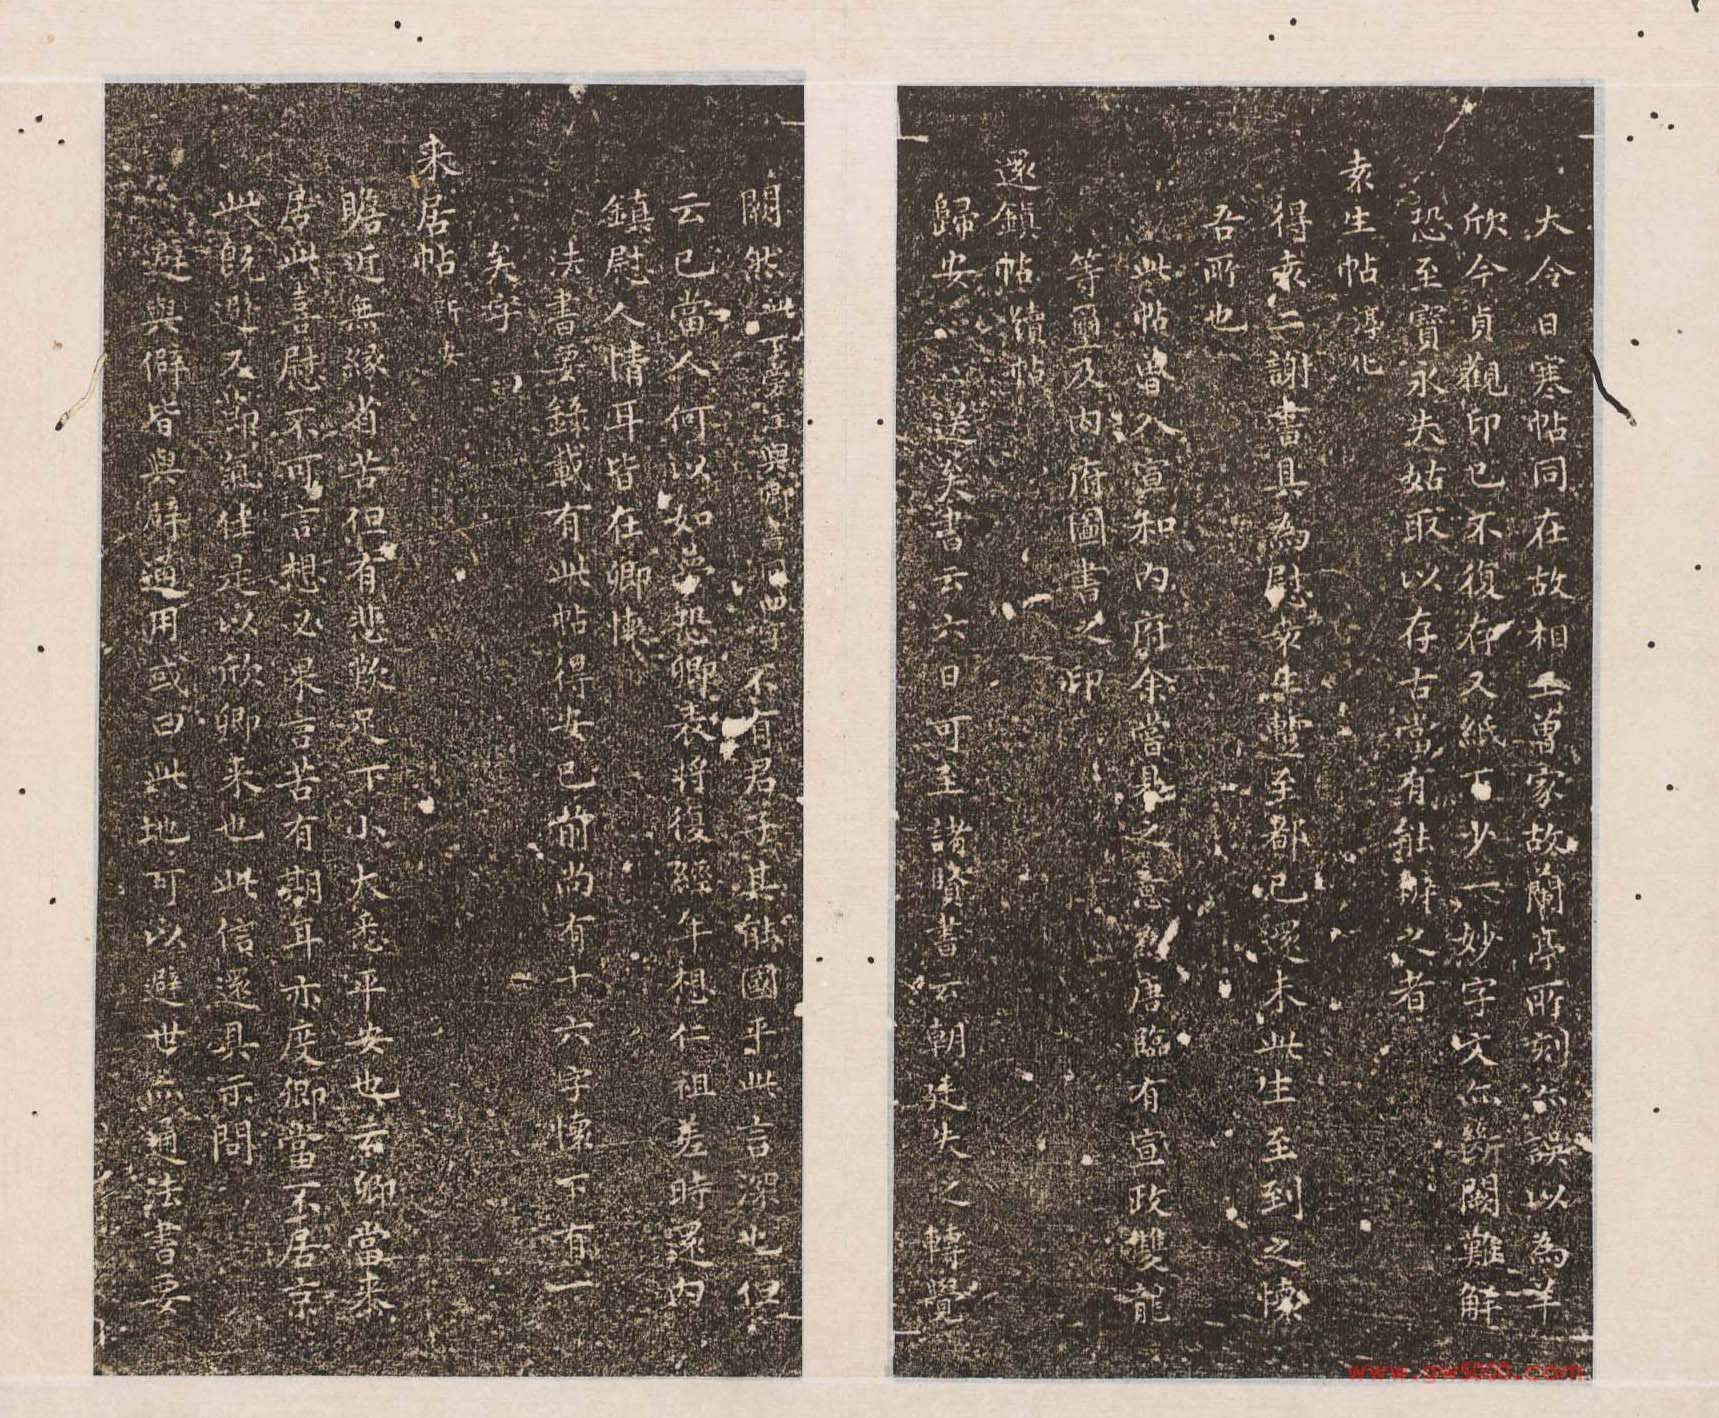 大令日寒帖同在故相王曾家故蘭亭所刻亦誤以為羊
欣今貞觀印已不復存又紙下少一妙字文亦斷闕難解
恐至寶永失姑取以存古當有能辨之者
袁生帖 淳化
得袁二謝書具為慰袁生暫至都已還未此生至到之懷
吾所也
此帖曾入宣和內府余嘗見之 唐臨有宣政雙龍
等璽及內府圖書之印
還鎮帖 續帖
歸安 送矣書云六日可至諸賢書云朝廷失之轉覺
闕然此下 與卿 不有君子其能國乎此言深也但
云已當人何以如 恐卿表將復經年想仁祖差時還內
鎮慰人情耳皆在卿懷
法書要錄載有此帖得安已前尚有十六字懷下有一
矣字
來居帖
瞻近無緣省苦但有悲歎足下小大悉平安也云卿當來
居此喜慰不可言想必果言苦有期耳亦度卿當不居京
此既避又節氣佳是以欣卿來也此信還具示問
避與僻皆與辟通用或曰此地可以避世亦通法書要
www.gw5000.com